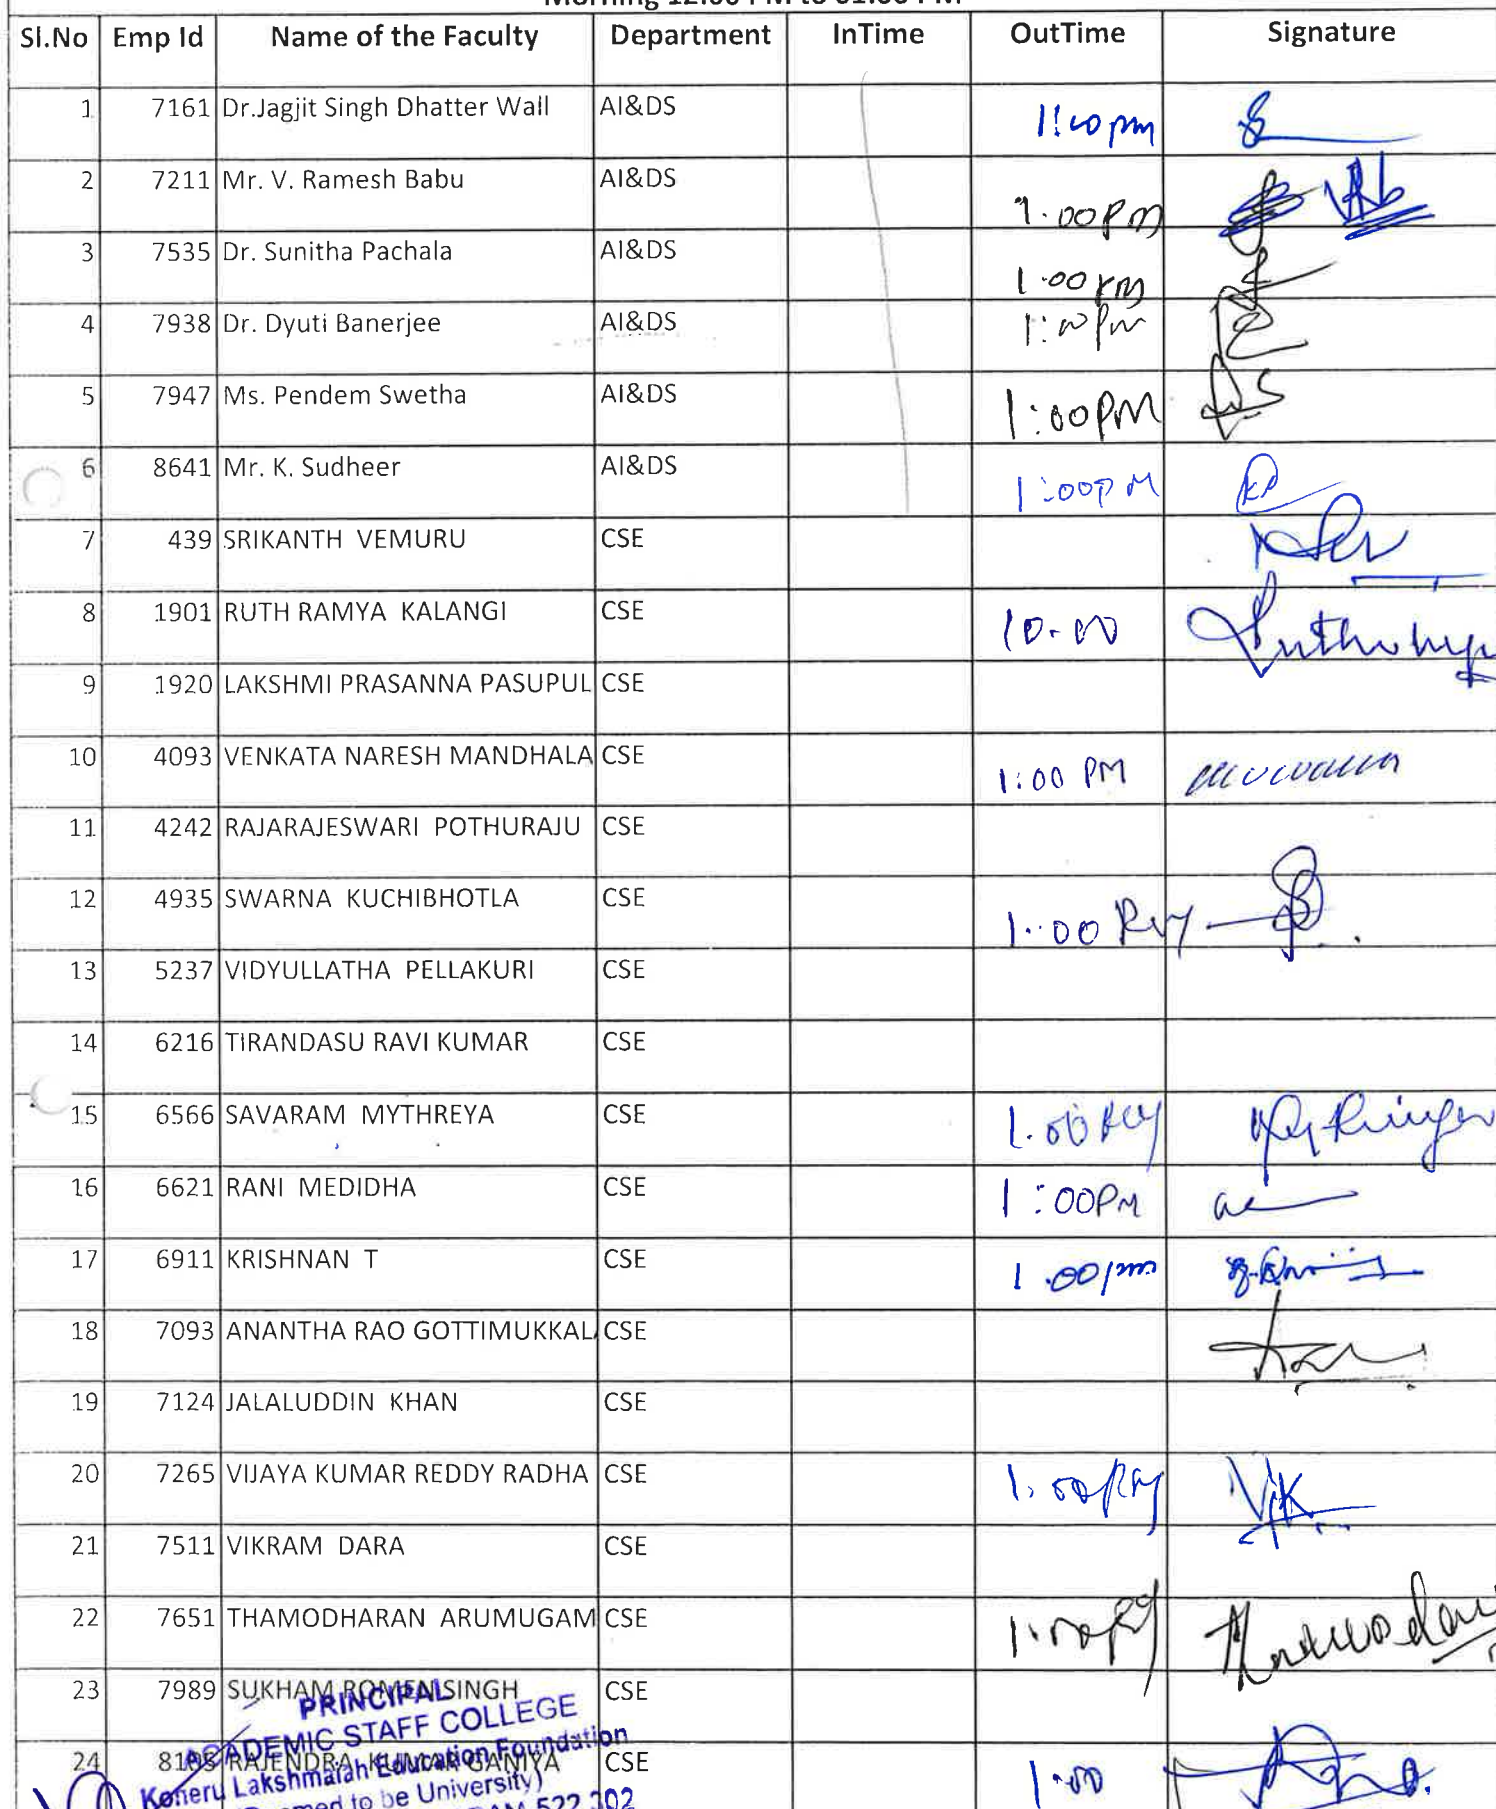 Morning 12:00 PM to 01:00 PM
Sl.No Emp Id Name of the Faculty Department InTime OutTime Signature
1 7161 Dr.Jagjit Singh Dhatter Wall AI&DS 1:00 pm
2 7211 Mr. V. Ramesh Babu AI&DS 1.00 PM
3 7535 Dr. Sunitha Pachala AI&DS 1.00 PM
4 7938 Dr. Dyuti Banerjee AI&DS 1:00 Pm
5 7947 Ms. Pendem Swetha AI&DS 1:00PM
6 8641 Mr. K. Sudheer AI&DS 1:00PM
7 439 SRIKANTH VEMURU CSE
8 1901 RUTH RAMYA KALANGI CSE 10.00
9 1920 LAKSHMI PRASANNA PASUPUL CSE
10 4093 VENKATA NARESH MANDHALA CSE 1:00 PM
11 4242 RAJARAJESWARI POTHURAJU CSE
12 4935 SWARNA KUCHIBHOTLA CSE 1:00
13 5237 VIDYULLATHA PELLAKURI CSE
14 6216 TIRANDASU RAVI KUMAR CSE
15 6566 SAVARAM MYTHREYA CSE 1.00
16 6621 RANI MEDIDHA CSE 1:00PM
17 6911 KRISHNAN T CSE 1.00pm
18 7093 ANANTHA RAO GOTTIMUKKAL CSE
19 7124 JALALUDDIN KHAN CSE
20 7265 VIJAYA KUMAR REDDY RADHA CSE 1.00
21 7511 VIKRAM DARA CSE
22 7651 THAMODHARAN ARUMUGAM CSE 1.00
23 7989 SUKHAM ROMEN SINGH CSE
PRINCIPAL
ACADEMIC STAFF COLLEGE
24 RAJENDRA KUMAR GANIYA CSE 1:00
Koneru Lakshmaiah Education Foundation
to be University)
522 302